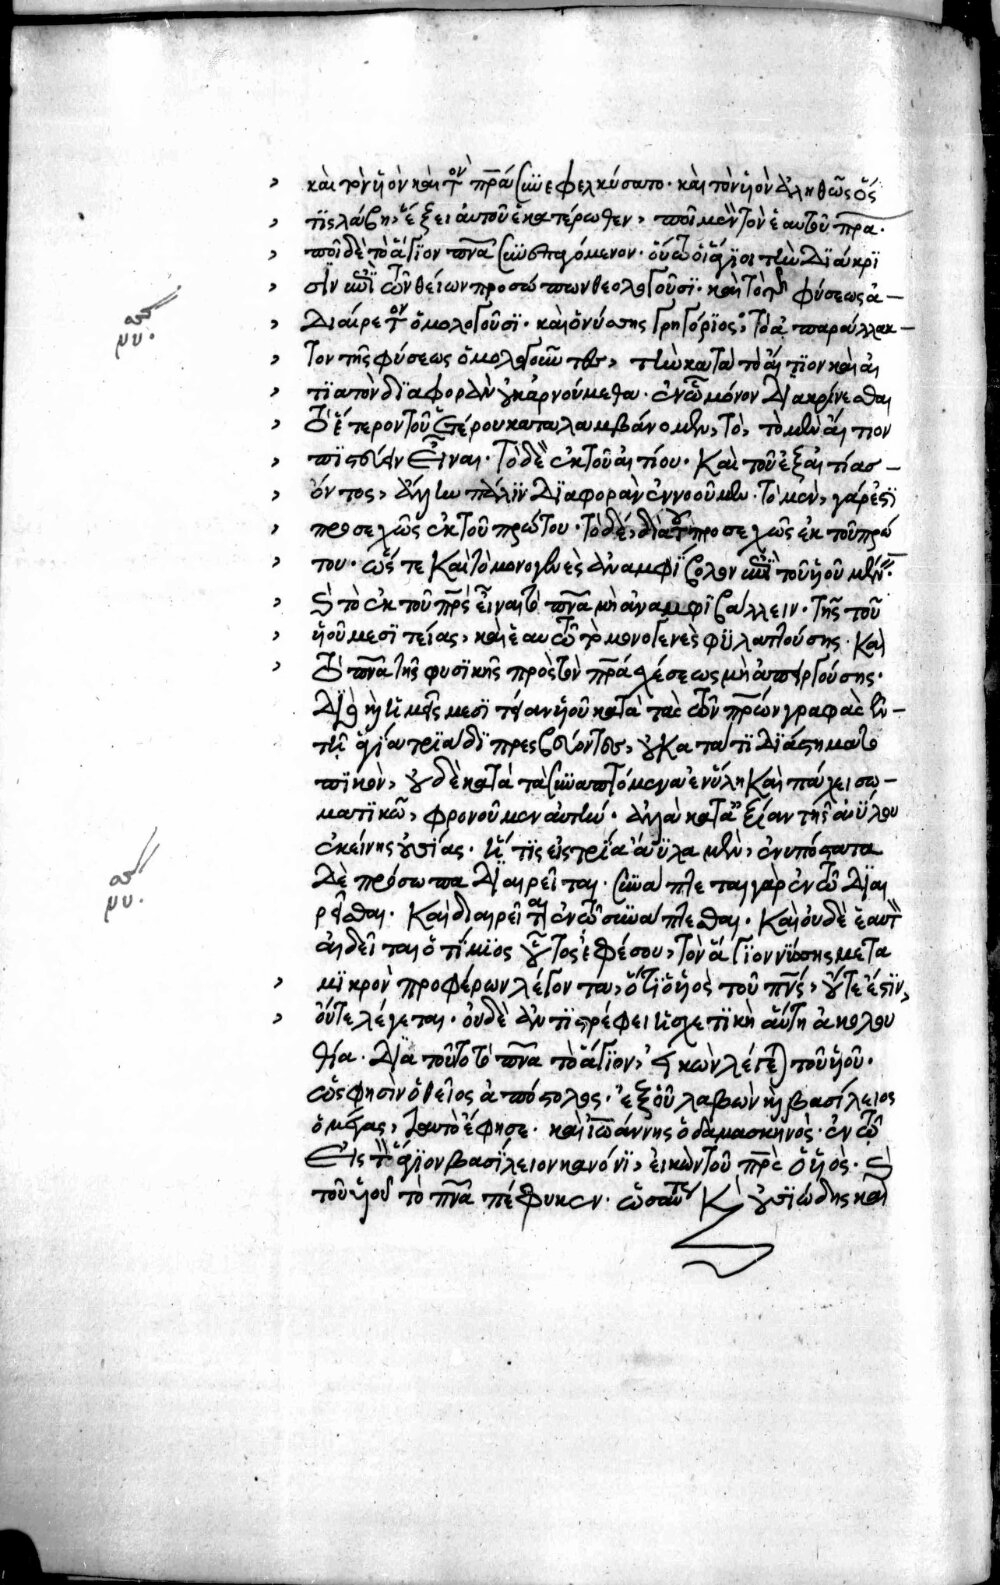 καὶ τὸν ὑὸν καὶ τὸν πρα συνεφελκύσατο · καὶ τὸν ὑὸν ἀληθῶς ὅς
τις λάβῃ, ἕξει αὐτοῦ ἑκατέρωθεν, ποῖ μὲν τὸν ἑαυτοῦ πρα ·
ποῖ δὲ τὸ ἅγϊον πνα συνεπαγόμενον · οὕτω οἱ ἅγϊοι τὴν Δϊάκρϊ
σϊν ἐπὶ τῶν θείων προσώπων θεολογοῦσϊ · καὶ τὸ τῆς φύσεως ἀ–
Διαίρετον ὁμολογοῦσϊ · καὶ ὁ νύσσης Γρηγόρϊος · Τὸ ἀπαράλλακ–
τον τῆς φύσεως ὁμολογοῦντες, τὴν κατὰ τὸ αἴτϊον καὶ αἰ
τϊατὸν δϊαφορὰν οὐκ ἀρνούμεθα · ἐν ᾧ μόνον Διακρίνεσθαι
τὸ ἕτερον τοῦ ἑτέρου καταλαμβάνομεν, τῷ, τὸ μὲν αἴτιον
πϊστεύειν εἶναι · Τὸ δὲ ἐκ τοῦ αἰτίου · Καὶ τοῦ ἐξ αἰτίας –
ὄντος, ἄλλην πάλϊν Δϊαφορὰν ἐννοοῦμεν · Τὸ μὲν, γάρ ἐστϊ
προσεχῶς ἐκ τοῦ πρώτου · Τὸ δέ, διὰ τοῦ προσεχῶς ἐκ τοῦ πρώ
του · ὥστε Καὶ τὸ μονογενὲς ἀναμφίβολον ἐπὶ τοῦ ὑοῦ μένειν ·
καὶ τὸ ἐκ τοῦ πρς εἶναι τὸ πνα μὴ ἀναμφϊβάλλειν · Τῆς τοῦ
ὑοῦ μεσϊτείας, καὶ ἑαυτῷ τὸ μονογενὲς φϋλαττούσης · Καὶ
τὸ πνα τῆς φυσϊκῆς πρὸς τὸν πρα σχέσεως μὴ ἀπειργούσης ·
Διὸ καὶ ἡμεῖς μεσϊτείαν ὑοῦ κατὰ τὰς τῶν πρων γραφὰς ἐν –
τῇ ἁγία τρϊάδϊ πρεσβεύοντες, οὐ κατά τϊ Δϊάστημα το
πϊκὸν, οὐδὲ κατὰ τὰ συναπτόμενα ἐν ὕλη Καὶ πάχει σω–
ματϊκῶ, φρονοῦμεν αὐτὴν · ἀλλὰ κατ' ἀξίαν τῆς ἀύλου
ἐκείνης οὐσίας · ἥτϊς εἰς τρία ἄϋλα μὲν, ἐνυπόστατα
Δὲ πρόσωπα Δϊαιρεῖται · συνάπτεται γὰρ ἐν τῷ Δϊαι
ρεῖσθαι · Καὶ διαιρεῖται ἐν τῷ συνάπτεσθαι · Καὶ οὐδὲ ἑαυτὸν
αἰδεῖται ὁ τίμϊος οὗτος ἐφέσου, Τὸν ἅγϊον νύσσης μετὰ
μϊκρὸν προφέρων λέγοντα, ὅτϊ ὁ ὑὸς τοῦ πνς, οὔτε ἐστϊν,
οὔτε λέγεται · οὐδὲ ἀντϊστρέφει ἡ σχετϊκὴ αὕτη ἀκολου
θία · Διὰ τοῦτο τὸ πνα τὸ ἅγϊον, εἰκὼν λέγεται τοῦ ὑοῦ ·
ὥς φησιν ὁ θεῖος ἀπόστολος · ἐξ οὗ λαβὼν καὶ βασίλειος
ὁ μέγας, ταυτὸ ἔφησε · καὶ ἰωάννης ὁ δαμασκηνὸς · ἐν τῷ
εἰς τὸν ἅγϊον βασίλειον κανόνϊ, εἰκὼν τοῦ πρς ὁ ὑὸς · καὶ
τοῦ ὑοῦ τὸ πνα πέφυκεν · ὡσαύτως Καὶ οὐσϊώδης καὶ